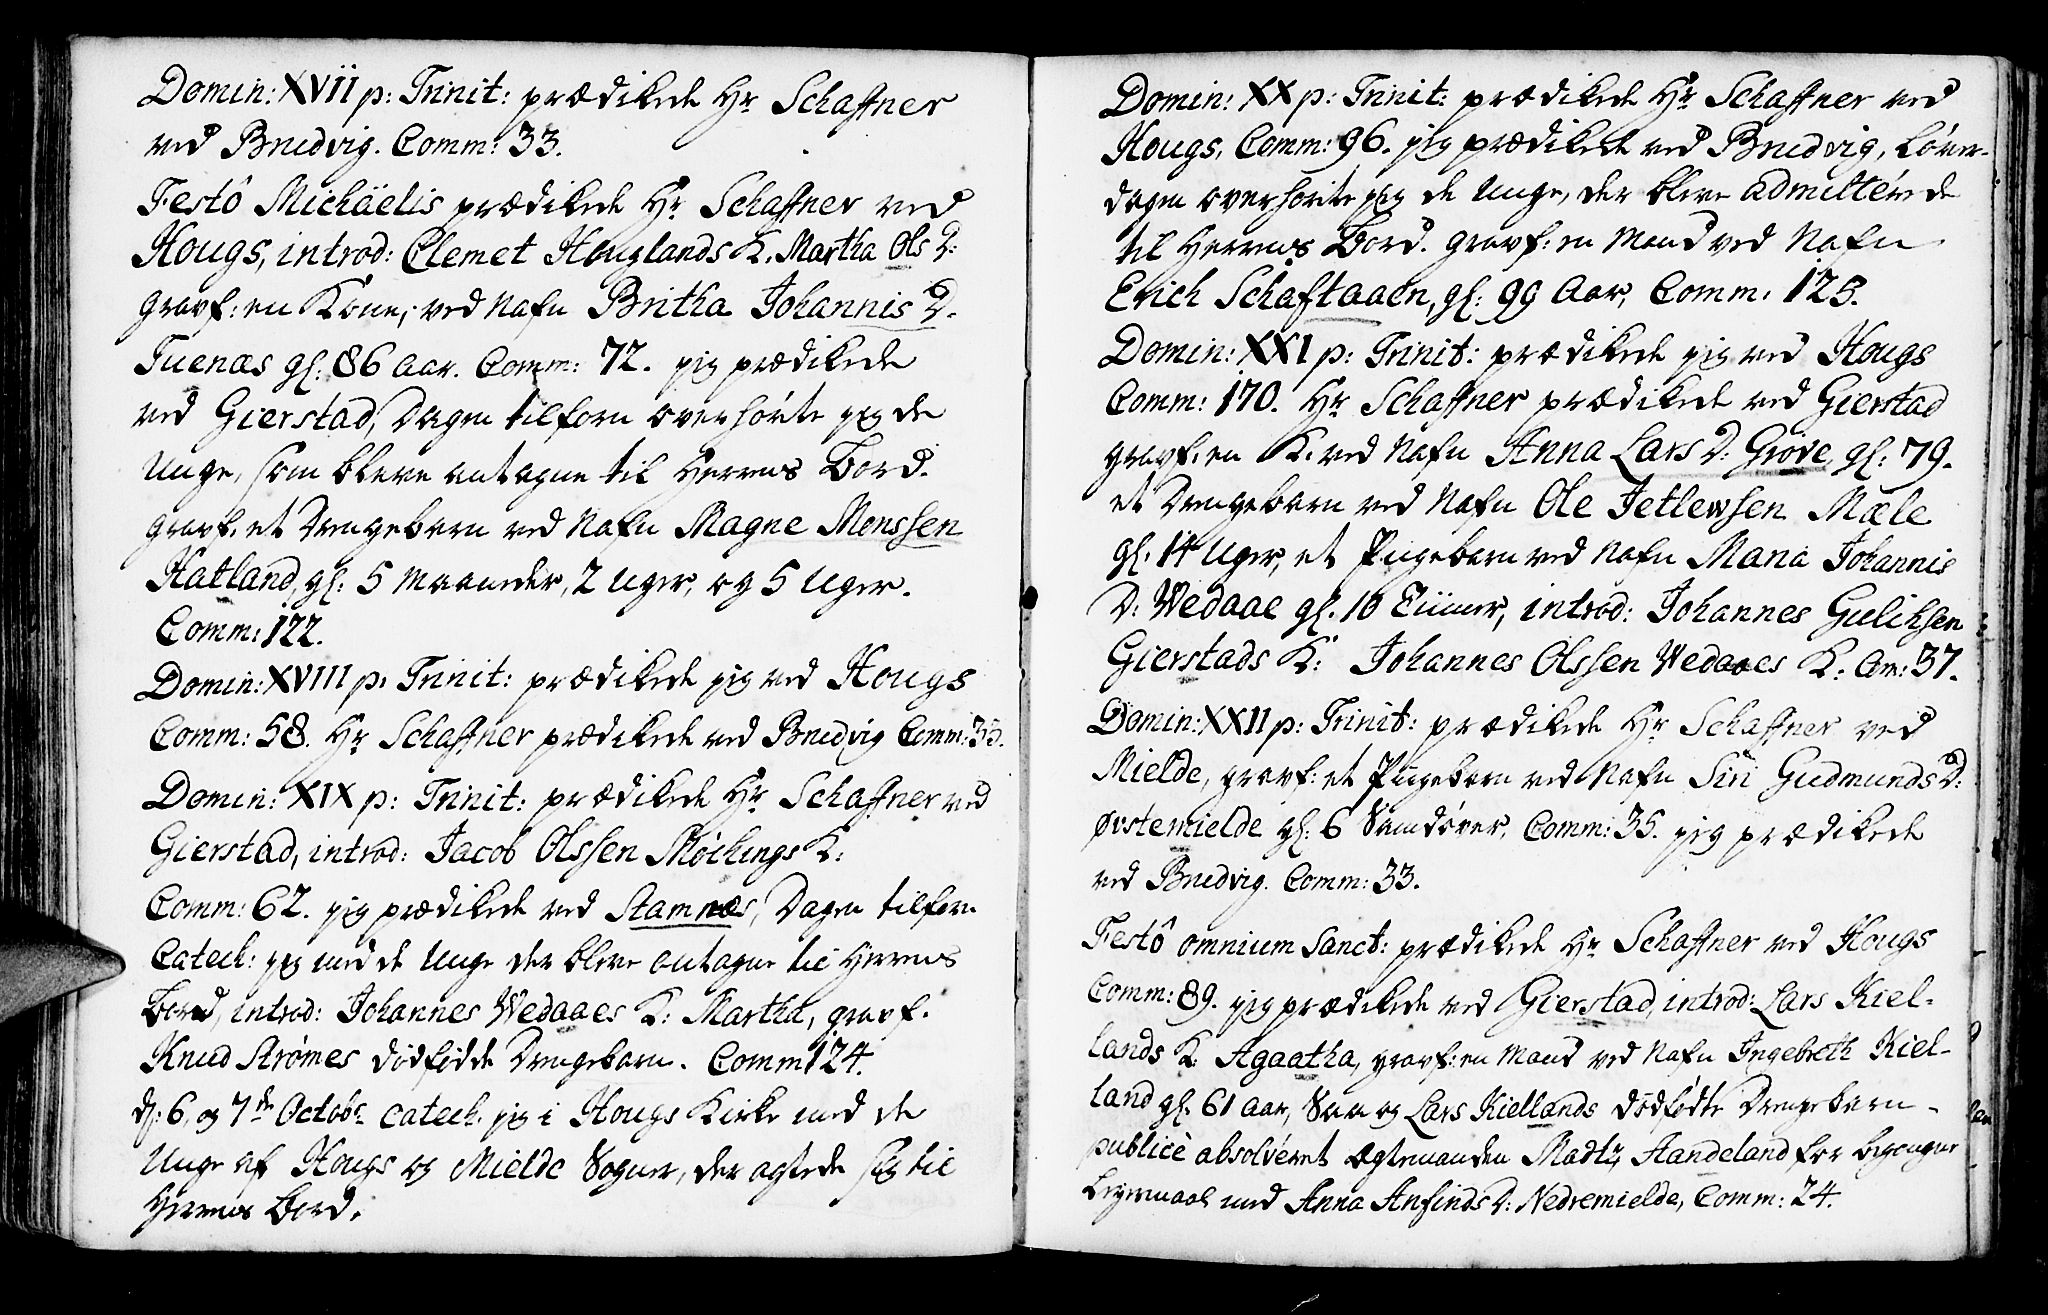 Domin: XVII p: Trinit: prædikede Hr Schaffner
ved Brudvig. Comm: 33.
Festô Michäelis prædikede Hr Schaffner ved
Hougs, introd: Clemet Houglands K. Martha Ols D:
gravf: en Kone, ved Nafn Britha Johannis D.
Tuenæs gl: 86 Aar. Comm: 72. jeg prædikede
ved Gierstad, Dagen tilforn overhörte jeg de
Unge, som bleve antagne til Herrens Bord.
gravf. et Drengebarn ved Nafn Magne Monssen
Hatland, gl: 5 Maaneder, 2 Uger, og 5 Uger.
Comm: 122.
Domin: XVIII p. Trinit: prædikede jeg ved Hougs
Comm: 58. Hr Schaffner prædikede ved Brudvig Comm: 33.
Domin: XIX p: Trinit: prædikede Hr Schaffner ved
Gierstad, introd: Jacob Olssen Möchings K:
Comm: 62. jeg prædikede ved Stamnæs, Dagen tilforn
Catech: jeg med de Unge der bleve antagne til Herrens
Bord, introd: Johannes Wedaaes K: Martha, gravf.
Knud Strømes dödfödde Drengebarn. Comm 124.
d: 6, og 7de Octobr catech. jeg i Hougs Kirke med de
Unge af Hougs og Mielde Sogner, der agtede sig til
Herrens Bord.
Domin: XX p: Trinit: prædikede Hr Schaffner ved
Hougs, Comm: 96. jeg prædikede ved Brudvig, Löver-
dagen overhörte jeg de Unge, der bleve admitterede
til Herrens Bord. gravf: en Mand ved Nafn
Erich Schaftaaen, gl: 99 Aar, Comm. 125.
Domin: XXI p: Trinit: prædikede jeg ved Hougs
Comm: 170. Hr Schaffner prædikede ved Gierstad
gravf. en K. ved Nafn Anna Lars D: Grove gl: 79.
et Drengebarn ved Nafn Ole Jetlewsen Mæle
gl. 14 Uger, et Pigebarn ved Nafn Maria Johannis
D: Wedaae gl. 10 Timer, introd: Johannes Gulichsen
Gierstads K: Johannes Olssen Wedaaes K: Com: 37.
Domin: XXII p: Trinit: prædikede Hr Schaffner ved
Mielde, gravf: et Pigebarn ved Nafn Siri Gudmunds D:
Øvstemielde gl: 6 Samdöver, Comm: 35. jeg prædikede
ved Brudvig. Comm: 33.
Festô omnium Sanct: prædikede Hr Schaffner ved Hougs
Comm: 89. jeg prædikede ved Gierstad, introd: Lars Kiel-
lands K: Agaatha, gravf: en Mand ved Nafn Ingebreth Kiel-
land gl. 61 Aar, Saa og Lars Kiellands dödfödte Drengebarn
publicè absolveret Ægtemanden Madtz Handeland for begangne
Leyermaal med Anna Anfinds D: Nedremielde, Comm: 24.